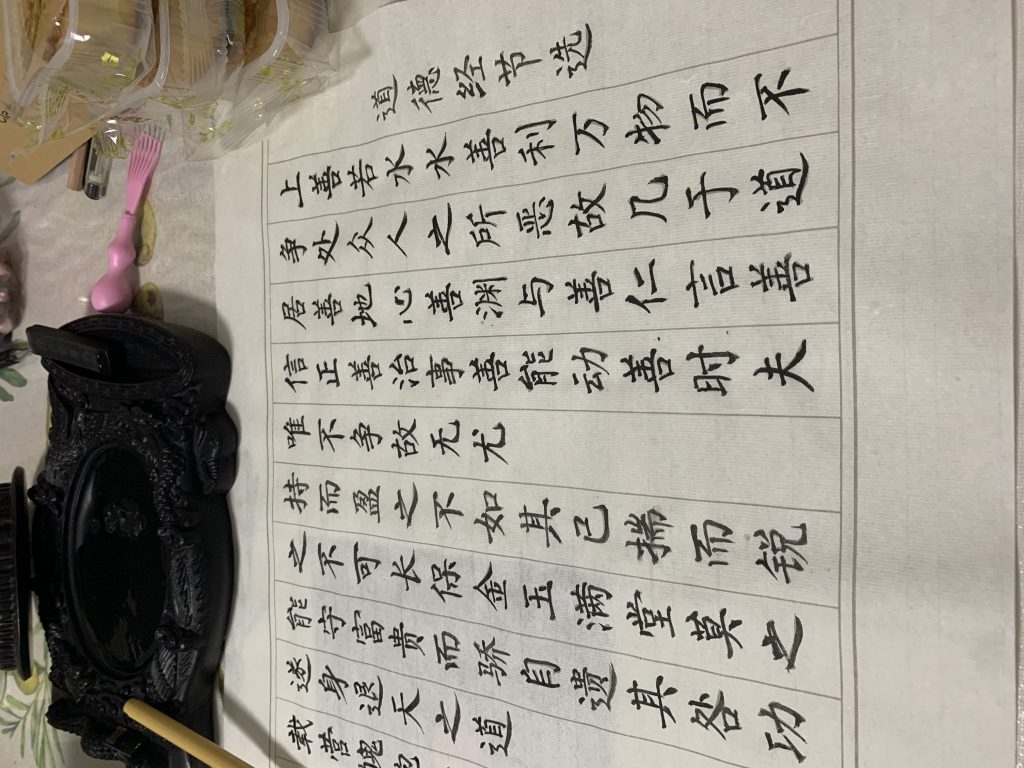 道德经节选
上善若水水善利万物而不
争处众人之所恶故几于道
居善地心善渊与善仁言善
信正善治事善能动善时夫
唯不争故无尤
持而盈之不如其已揣而锐
之不可长保金玉满堂莫之
能守富贵而骄自遗其咎功
遂身退天之道
载营魄